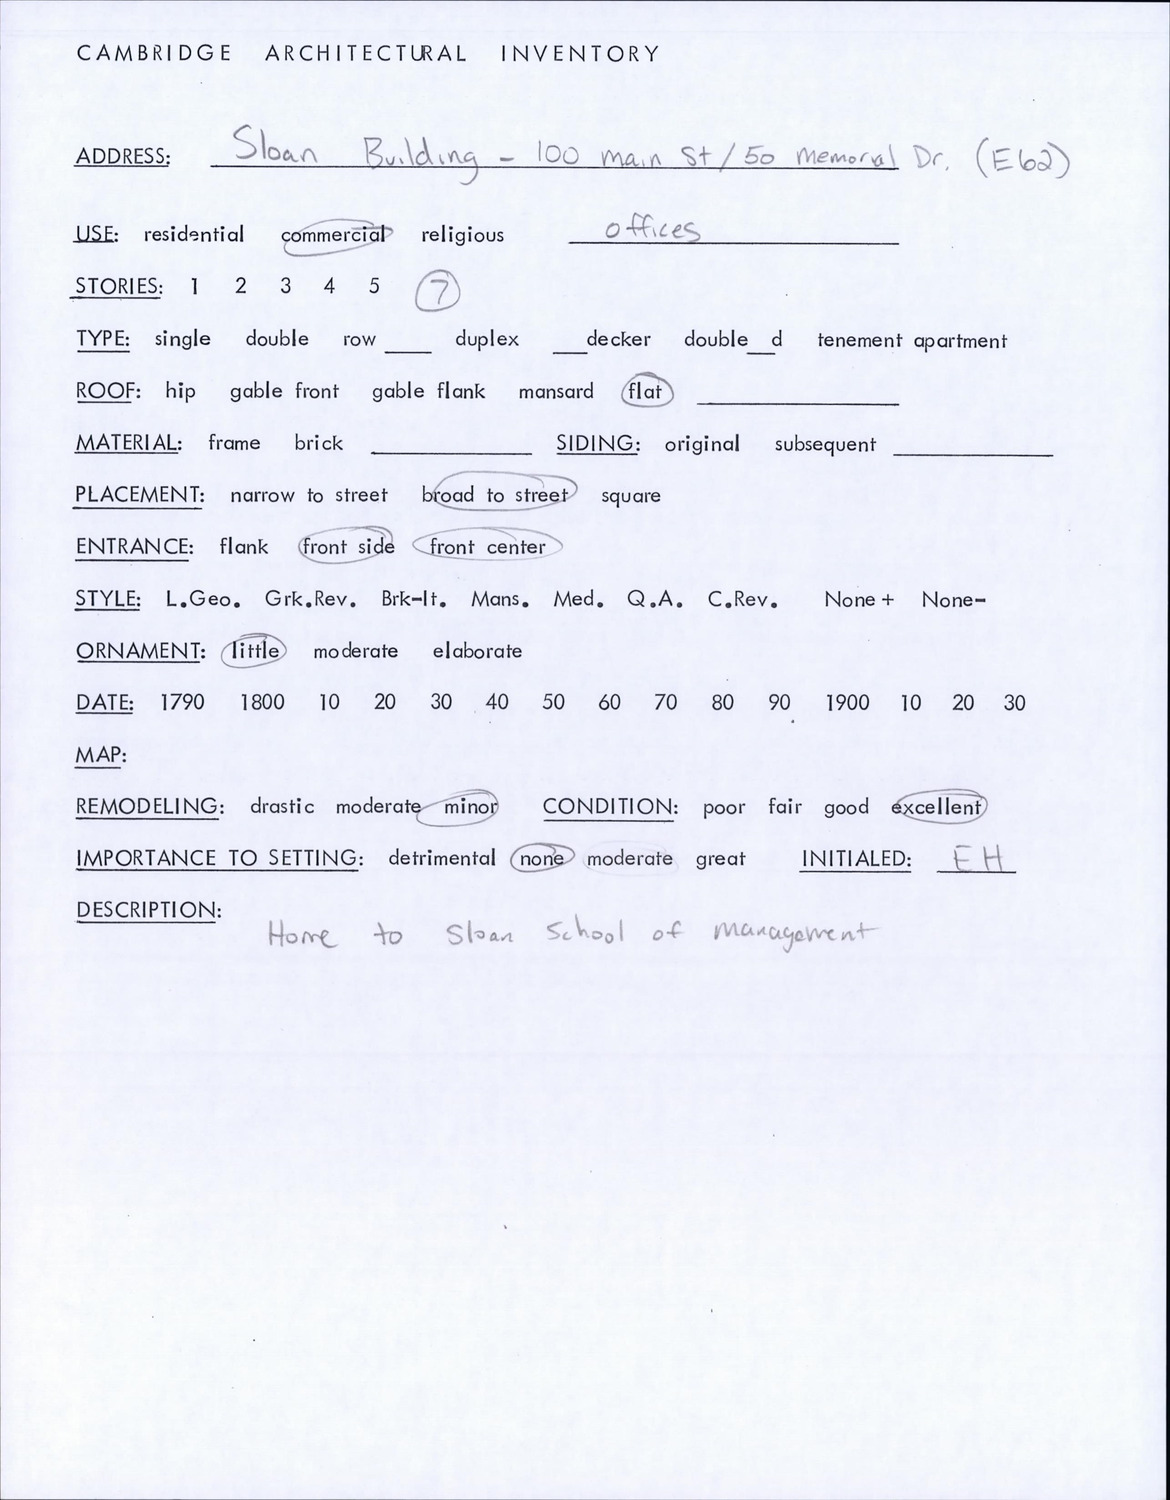 CAMBRIDGE ARCHITECTURAL INVENTORY
ADDRESS: Sloan Building - 100 main St / 50 Memorial Dr. (E62)
USE: residential commercial religious offices
STORIES: 1 2 3 4 5 7
TYPE: single double row ____ duplex ___decker double__d tenement apartment
ROOF: hip gable front gable flank mansard flat ____
MATERIAL: frame brick ____ SIDING: original subsequent ____
PLACEMENT: narrow to street broad to street square
ENTRANCE: flank front side front center
STYLE: L.Geo. Grk.Rev. Brk-It. Mans. Med. Q.A. C.Rev. None+ None-
ORNAMENT: little moderate elaborate
DATE: 1790 1800 10 20 30 40 50 60 70 80 90 1900 10 20 30
MAP:
REMODELING: drastic moderate minor CONDITION: poor fair good excellent
IMPORTANCE TO SETTING: detrimental none moderate great INITIALED: EH
DESCRIPTION:
Home to Sloan School of management